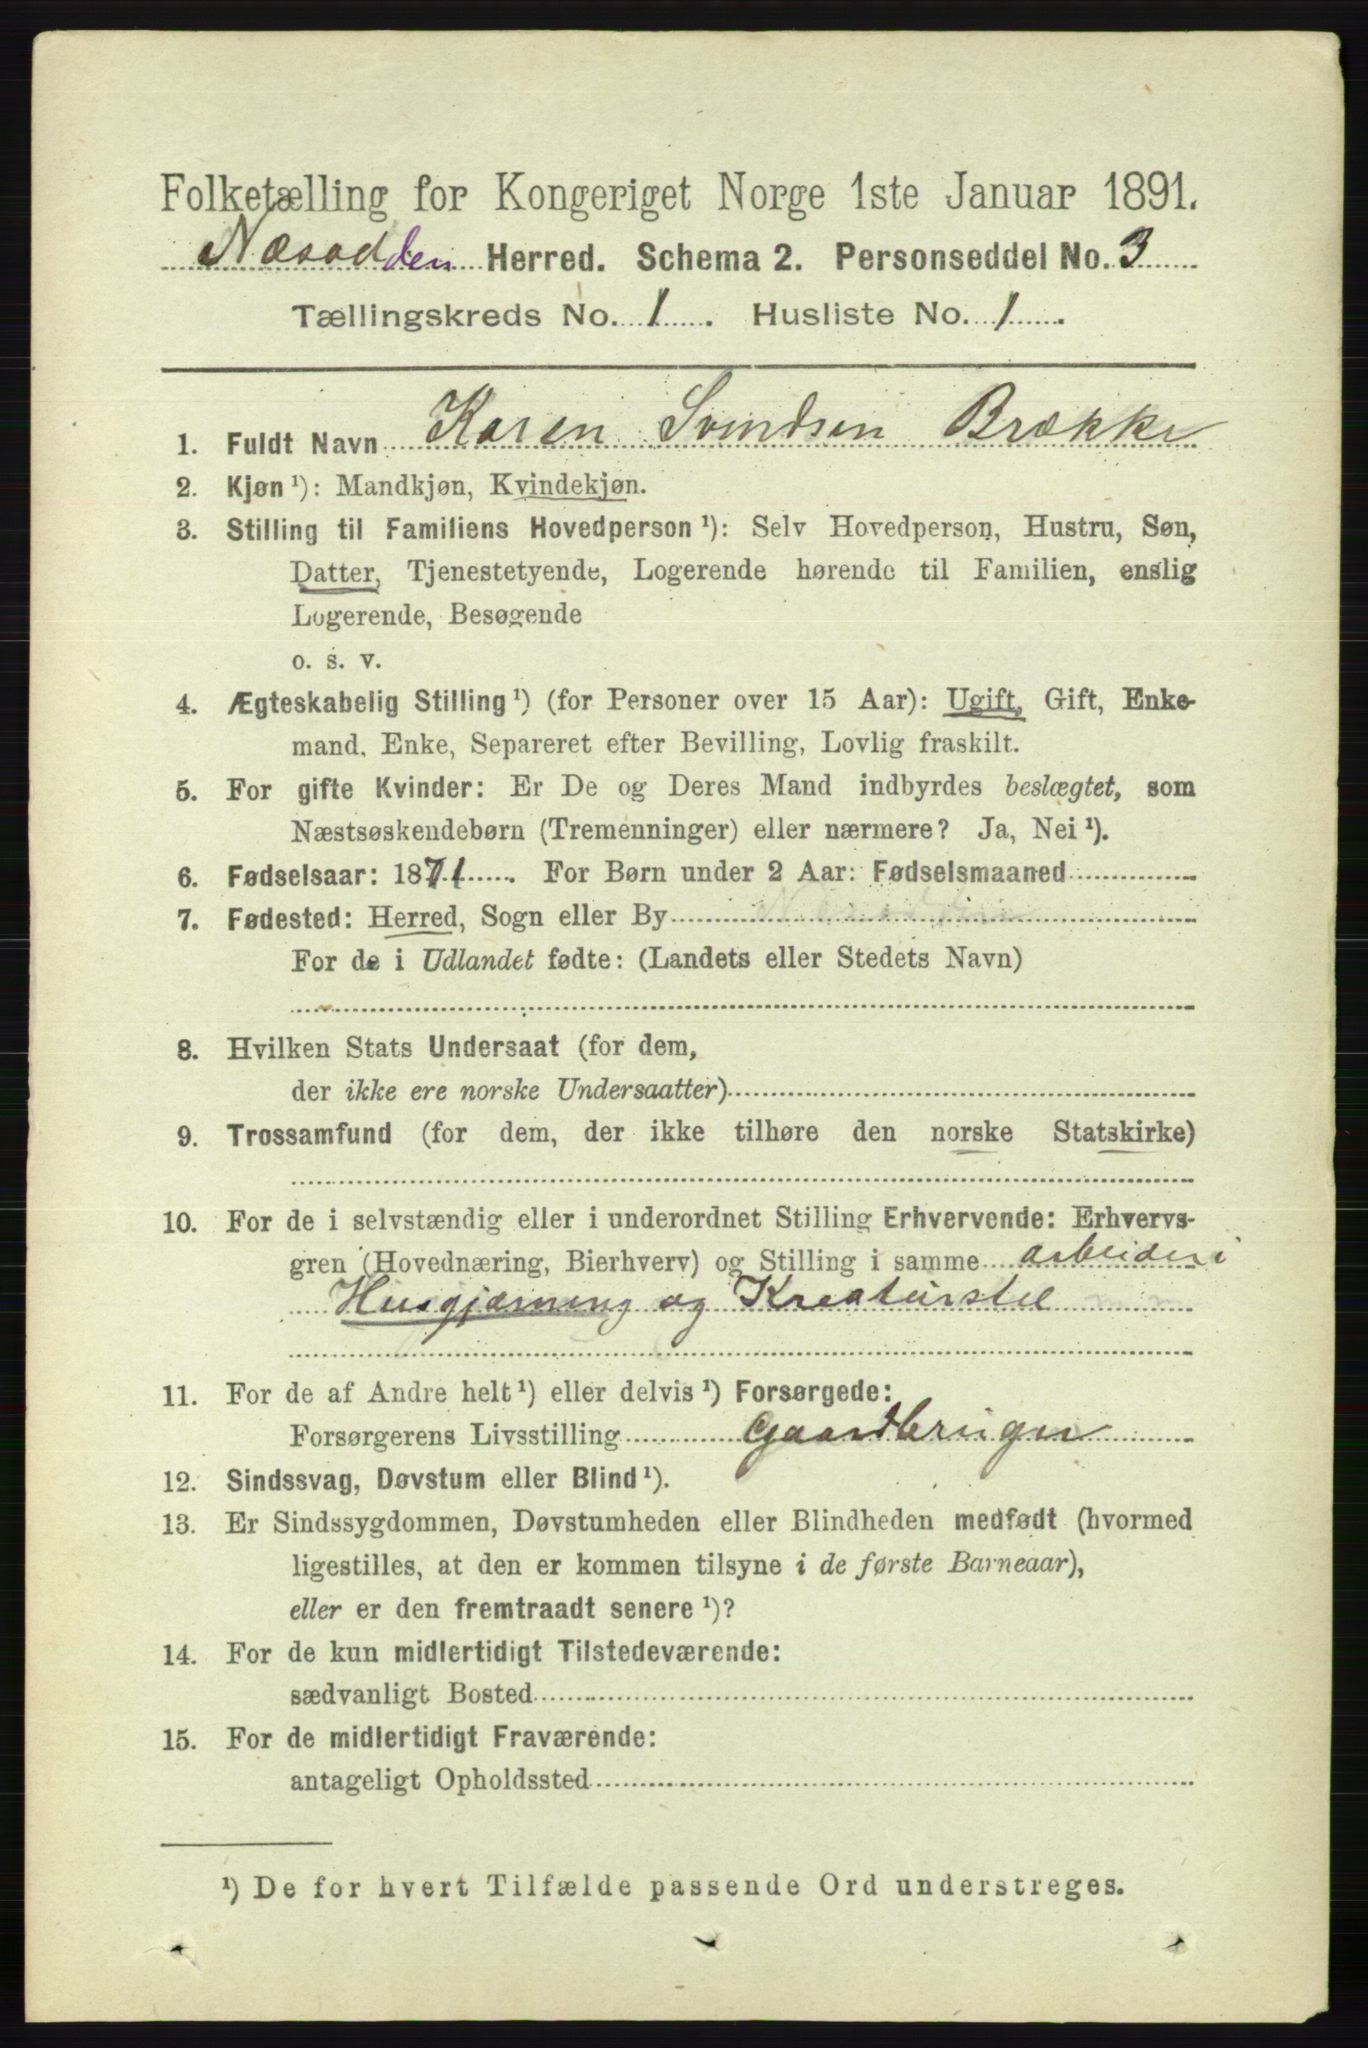 Folketælling for Kongeriget Norge 1ste Januar 1891.
Næsodden Herred. Schema 2. Personseddel No. 3
Tællingskreds No. 1. Husliste No. 1.
1. Fuldt Navn Karen Svendsen Brække
2. Kjøn ¹): Mandkjøn, Kvindekjøn.
3. Stilling til Familiens Hovedperson ¹): Selv Hovedperson, Hustru, Søn,
Datter, Tjenestetyende, Logerende hørende til Familien, enslig
Logerende, Besøgende
o. s. v.
4. Ægteskabelig Stilling ¹) (for Personer over 15 Aar): Ugift, Gift, Enke-
mand, Enke, Separeret efter Bevilling, Lovlig fraskilt.
5. For gifte Kvinder: Er De og Deres Mand indbyrdes beslægtet, som
Næstsøskendebørn (Tremenninger) eller nærmere? Ja, Nei ¹).
6. Fødselsaar: 1871. For Børn under 2 Aar: Fødselsmaaned
7. Fødested: Herred, Sogn eller By Næsodden
For de i Udlandet fødte: (Landets eller Stedets Navn)
8. Hvilken Stats Undersaat (for dem,
der ikke ere norske Undersaatter)
9. Trossamfund (for dem, der ikke tilhøre den norske Statskirke)
10. For de i selvstændig eller i underordnet Stilling Erhvervende: Erhvervs-
gren (Hovednæring, Bierhverv) og Stilling i samme arbeider i
Husgjærning og Kreaturstel
11. For de af Andre helt ¹) eller delvis ¹) Forsørgede:
Forsørgerens Livsstilling Gaardbruger
12. Sindssvag, Døvstum eller Blind ¹).
13. Er Sindssygdommen, Døvstumheden eller Blindheden medfødt (hvormed
ligestilles, at den er kommen tilsyne i de første Barneaar),
eller er den fremtraadt senere ¹)?
14. For de kun midlertidigt Tilstedeværende:
sædvanligt Bosted
15. For de midlertidigt Fraværende:
antageligt Opholdssted
¹) De for hvert Tilfælde passende Ord understreges.